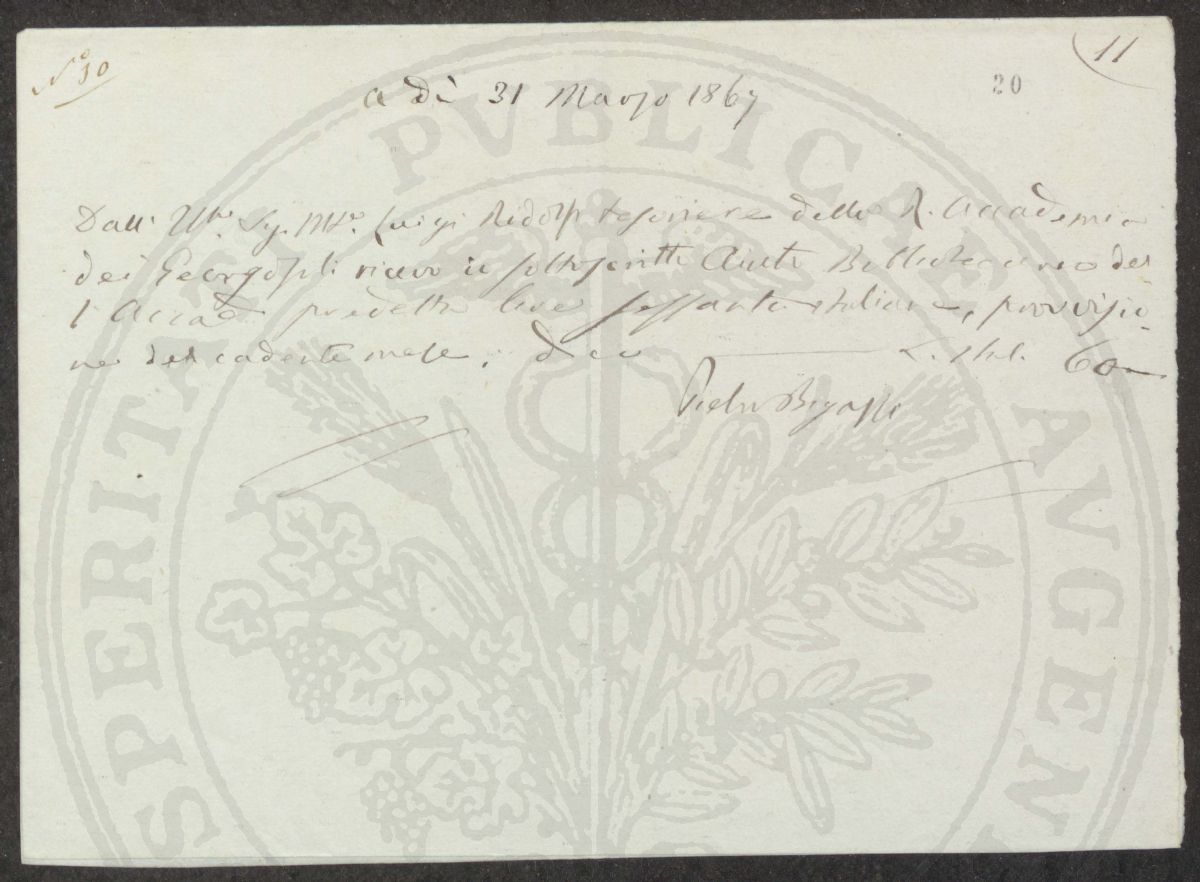 N° 10
11
20
a dì 31 Marzo 1867
Dall' Sig. Luigi Ridolfi tesoriere della R. Accademia
dei Georgofili ricevo io sottoscritto Aiuto Bibliotecario del
l'Accad. predetta lire sessanta italiane, provvisio-
ne del cadente mese, dico L. Ital. 60
Pietro Bigazzi
SPERITATI PVBLICAE AVGEN